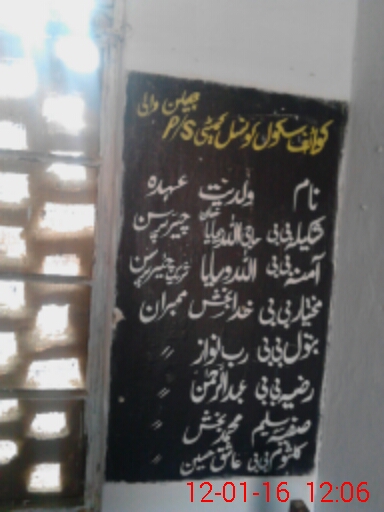 جیلن والی
کوائف سکول کونسل کمیٹی P/S
نام ولدیت عہدہ
شکیلہ بی بی اللہ وسایا چیئرپرسن
آمنہ بی بی اللہ وسایا چیئرپرسن
مختیار بی بی خدا بخش ممبران
بتول بی بی رب نواز 〃
رضیہ بی بی عبدالرحمٰن 〃
صفیہ سلیم محمد بخش 〃
کلثوم بی بی عاشق حسین 〃
12-01-16 12:06